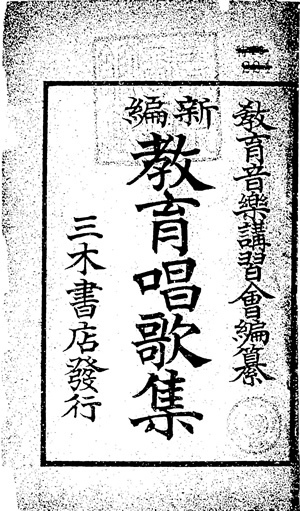 二
教育音樂講習會編纂
新編
教育唱歌集
三木書店發行